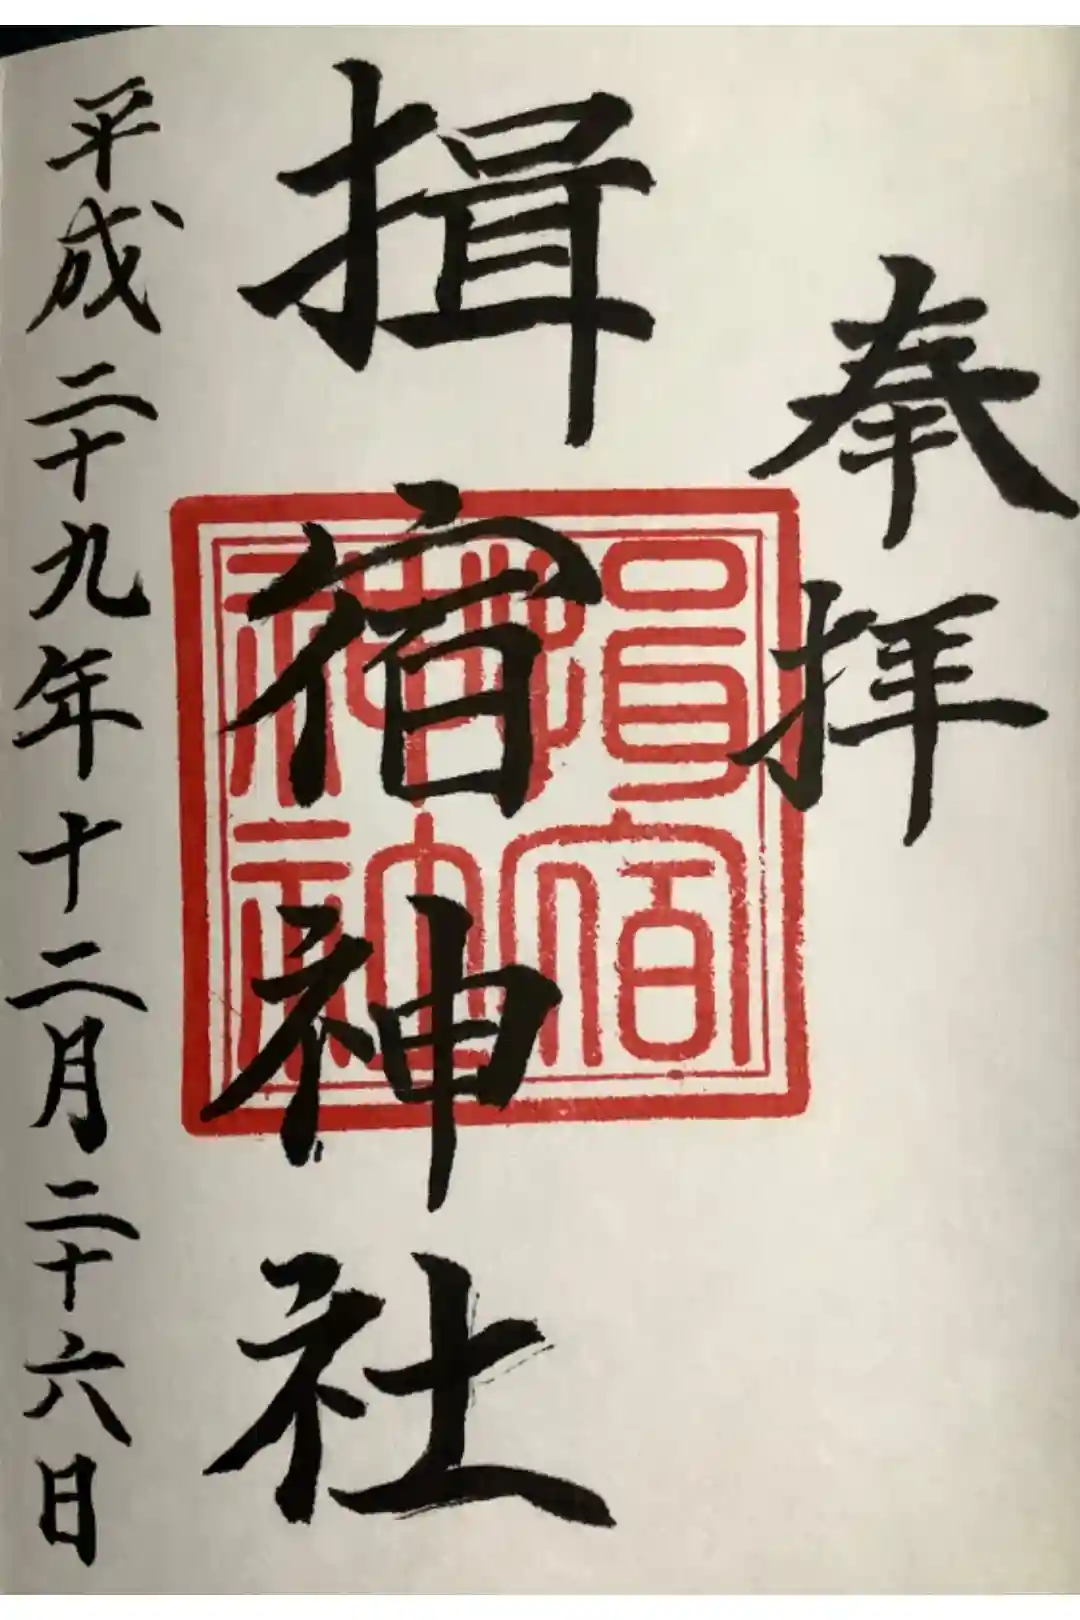 奉拝
揖宿神社
平成二十九年十二月二十六日